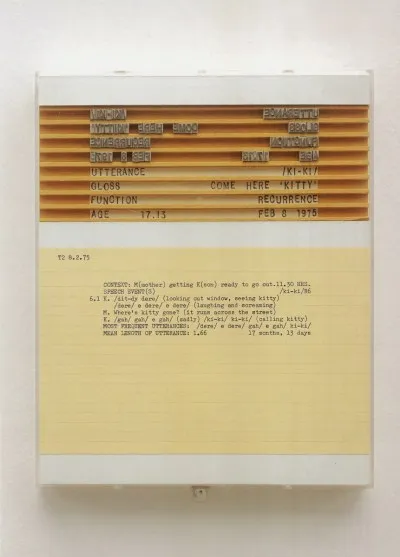 UTTERANCE /KI-KI/
GLOSS COME HERE 'KITTY'
FUNCTION RECURRENCE
AGE 17.13 FEB 8 1975
T2 8.2.75
CONTEXT: M(other) getting K(son) ready to go out.11.30 HRS.
SPEECH EVENT(S) /ki-ki/86
6.1 K. /dit-dy dere/ (looking out window, seeing kitty)
/dere/ e dere/ e dere/ (laughing and screaming)
M. Where's kitty gone? (it runs across the street)
K. /gah/ gah/ e gah/ (sadly) /ki-ki/ ki-ki/ (calling kitty)
MOST FREQUENT UTTERANCES: /dere/ e dere/ gah/ e gah/ ki-ki/
MEAN LENGTH OF UTTERANCE: 1.66 17 months, 13 days